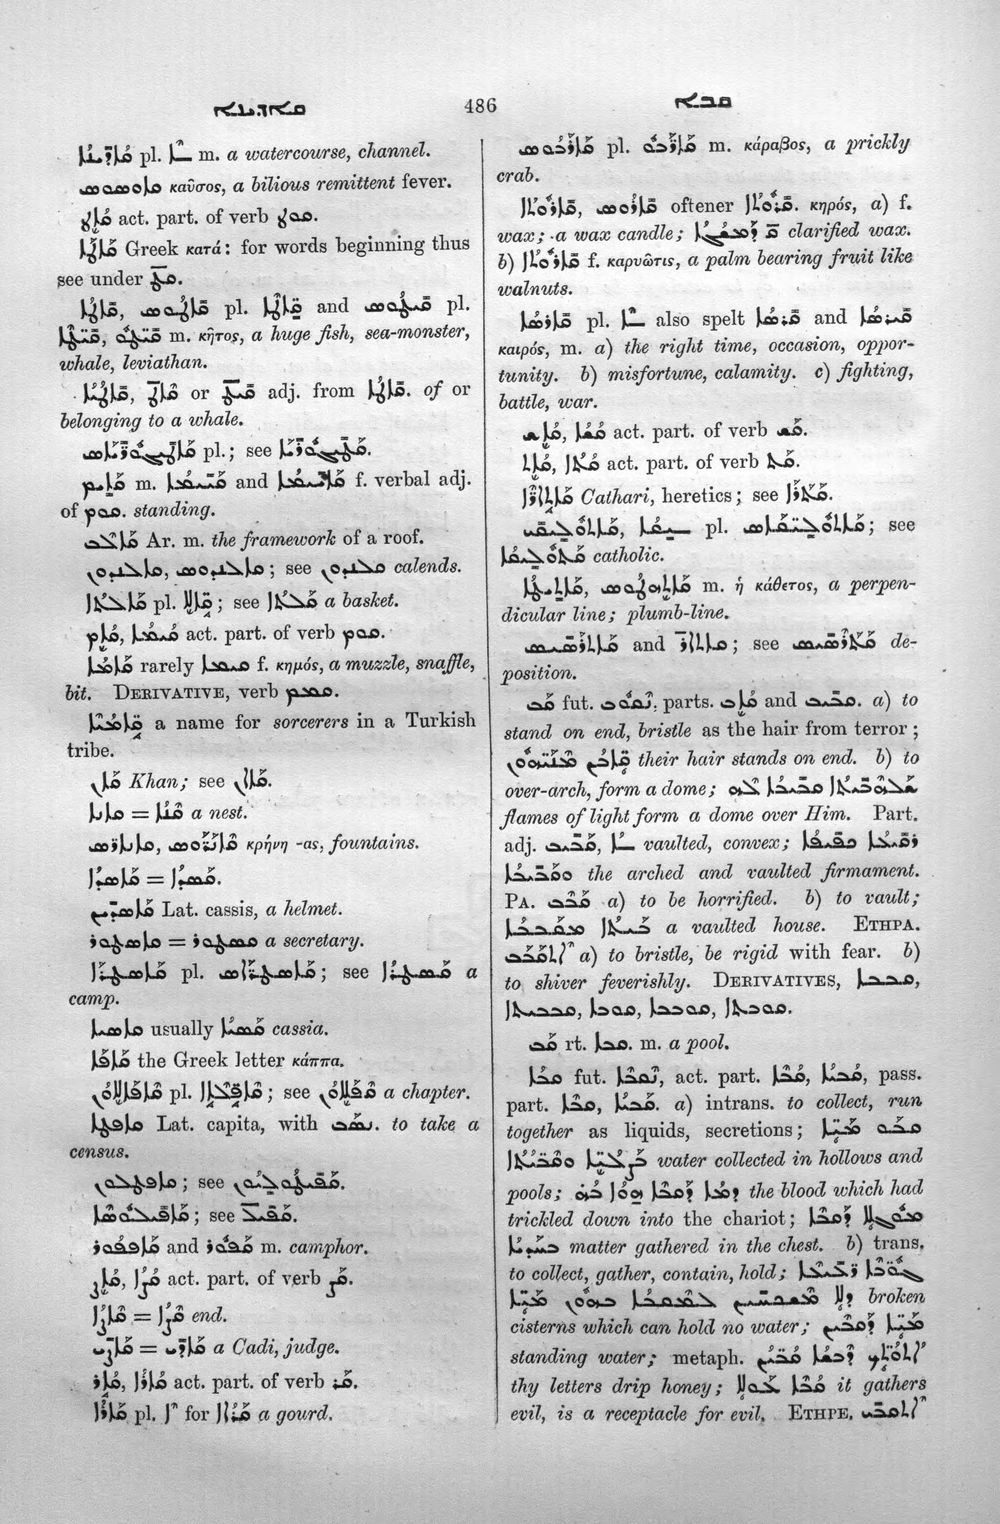 ܩܐܕܝܢܐ 486 ܩܒܐ
ܩܐܕܝܢܐ pl. m. a watercourse, channel.
ܩܐܘܣܘܣ καῦσος, a bilious remittent fever.
ܩܐܛ act. part. of verb ܩܘܛ.
ܩܐܛܐ Greek κατά: for words beginning thus
see under ܩܛ.
ܩܐܛܐ, ܩܐܛܘܣ pl. ܩܐܛܐ and ܩܝܛܘܣ pl.
m. κῆτος, a huge fish, sea-monster,
whale, leviathan.
or adj. from ܩܐܛܐ. of or
belonging to a whale.
pl.; see
ܩܐܝܡ m. and f. verbal adj.
of ܩܘܡ. standing.
ܩܐܠܒ Ar. m. the framework of a roof.
ܩܐܠܢܕܘܢ, ܩܐܠܢܕܘܣ; see ܩܠܢܕܘܢ calends.
ܩܐܠܬܐ pl. see ܩܠܬܐ a basket.
ܩܐܡ, ܩܝܡܐ act. part. of verb ܩܘܡ.
ܩܐܡܐ rarely ܩܝܡܐ f. κημός, a muzzle, snaffle,
bit. DERIVATIVE, verb ܩܡܡ.
ܩܐܡܢܐ a name for sorcerers in a Turkish
tribe.
ܩܐܢ Khan; see ܟܐܢ.
ܩܐܢܐ = ܩܢܐ a nest.
κρήνη -ας, fountains.
ܩܐܣܕܐ = ܩܣܕܐ.
ܩܐܣܕܝܣ Lat. cassis, a helmet.
ܩܐܣܛܘܪ = ܩܣܛܘܪ a secretary.
ܩܐܣܛܪܐ pl. see ܩܣܛܪܐ a
camp.
ܩܐܣܝܐ usually ܩܣܝܐ cassia.
ܩܐܦܐ the Greek letter κάππα.
ܩܐܦܠܐܘܢ pl. see ܩܦܠܐܘܢ a chapter.
ܩܐܦܛܐ Lat. capita, with ܢܣܒ. to take a
census.
see
see
ܩܐܦܘܪ and ܩܦܘܪ m. camphor.
ܩܐܨ, ܩܝܨܐ act. part. of verb ܩܨ.
ܩܐܨܐ = ܩܨܐ end.
ܩܐܨܝ = ܩܐܕܝ a Cadi, judge.
ܩܐܪ, ܩܐܪܐ act. part. of verb ܩܪ.
ܩܐܪܐ pl. for ܩܪܐܐ a gourd.
ܩܐܪܒܘܣ pl. m. κάραβος, a prickly
crab.
ܩܐܪܘܬܐ, ܩܐܪܘܣ oftener ܩܪܘܬܐ. κηρός, a) f.
wax; a wax candle; clarified wax.
b) f. καρυῶτις, a palm bearing fruit like
walnuts.
ܩܐܪܣܐ pl. also spelt ܩܪܣܐ and ܩܝܪܣܐ
καιρός, m. a) the right time, occasion, oppor-
tunity. b) misfortune, calamity. c) fighting,
battle, war.
ܩܐܫ, ܩܝܫܐ act. part. of verb ܩܫ.
act. part. of verb ܩܬ.
Cathari, heretics; see
ܩܐܬܘܠܝܩܝ, pl. see
ܩܬܘܠܝܩܐ catholic.
m. ἡ κάθετος, a perpen-
dicular line; plumb-line.
and see de-
position.
ܩܒ fut. ܢܩܘܒ, parts. ܩܐܒ and ܩܒܝܒ. a) to
stand on end, bristle as the hair from terror;
their hair stands on end. b) to
over-arch, form a dome;
flames of light form a dome over Him. Part.
adj. ܩܒܝܒ, vaulted, convex;
the arched and vaulted firmament.
PA. ܩܒܒ a) to be horrified. b) to vault;
ܒܝܬܐ ܡܩܒܒܐ a vaulted house. ETHPA.
ܐܬܩܒܒ a) to bristle, be rigid with fear. b)
to shiver feverishly. DERIVATIVES, ܩܒܒܐ,
ܩܒܝܒܬܐ, ܩܘܒܐ, ܩܘܒܒܐ, ܩܘܒܬܐ.
ܩܒ rt. ܩܒܐ. m. a pool.
ܩܒܐ fut. ܢܩܒܐ, act. part. ܩܒܐ, ܩܒܝܐ, pass.
part. ܩܒܐ, ܩܒܝܐ. a) intrans. to collect, run
together as liquids, secretions; ܩܒܘ ܡܝܐ
water collected in hollows and
pools; ܕܡܐ ܕܩܒܐ ܗܘܐ ܒܗ the blood which had
trickled down into the chariot;
matter gathered in the chest. b) trans.
to collect, gather, contain, hold;
broken
cisterns which can hold no water; ܡܝܐ ܕܩܒܝܢ
standing water; metaph.
thy letters drip honey; ܩܒܐ ܥܘܠܐ it gathers
evil, is a receptacle for evil. ETHPE. ܐܬܩܒܝ